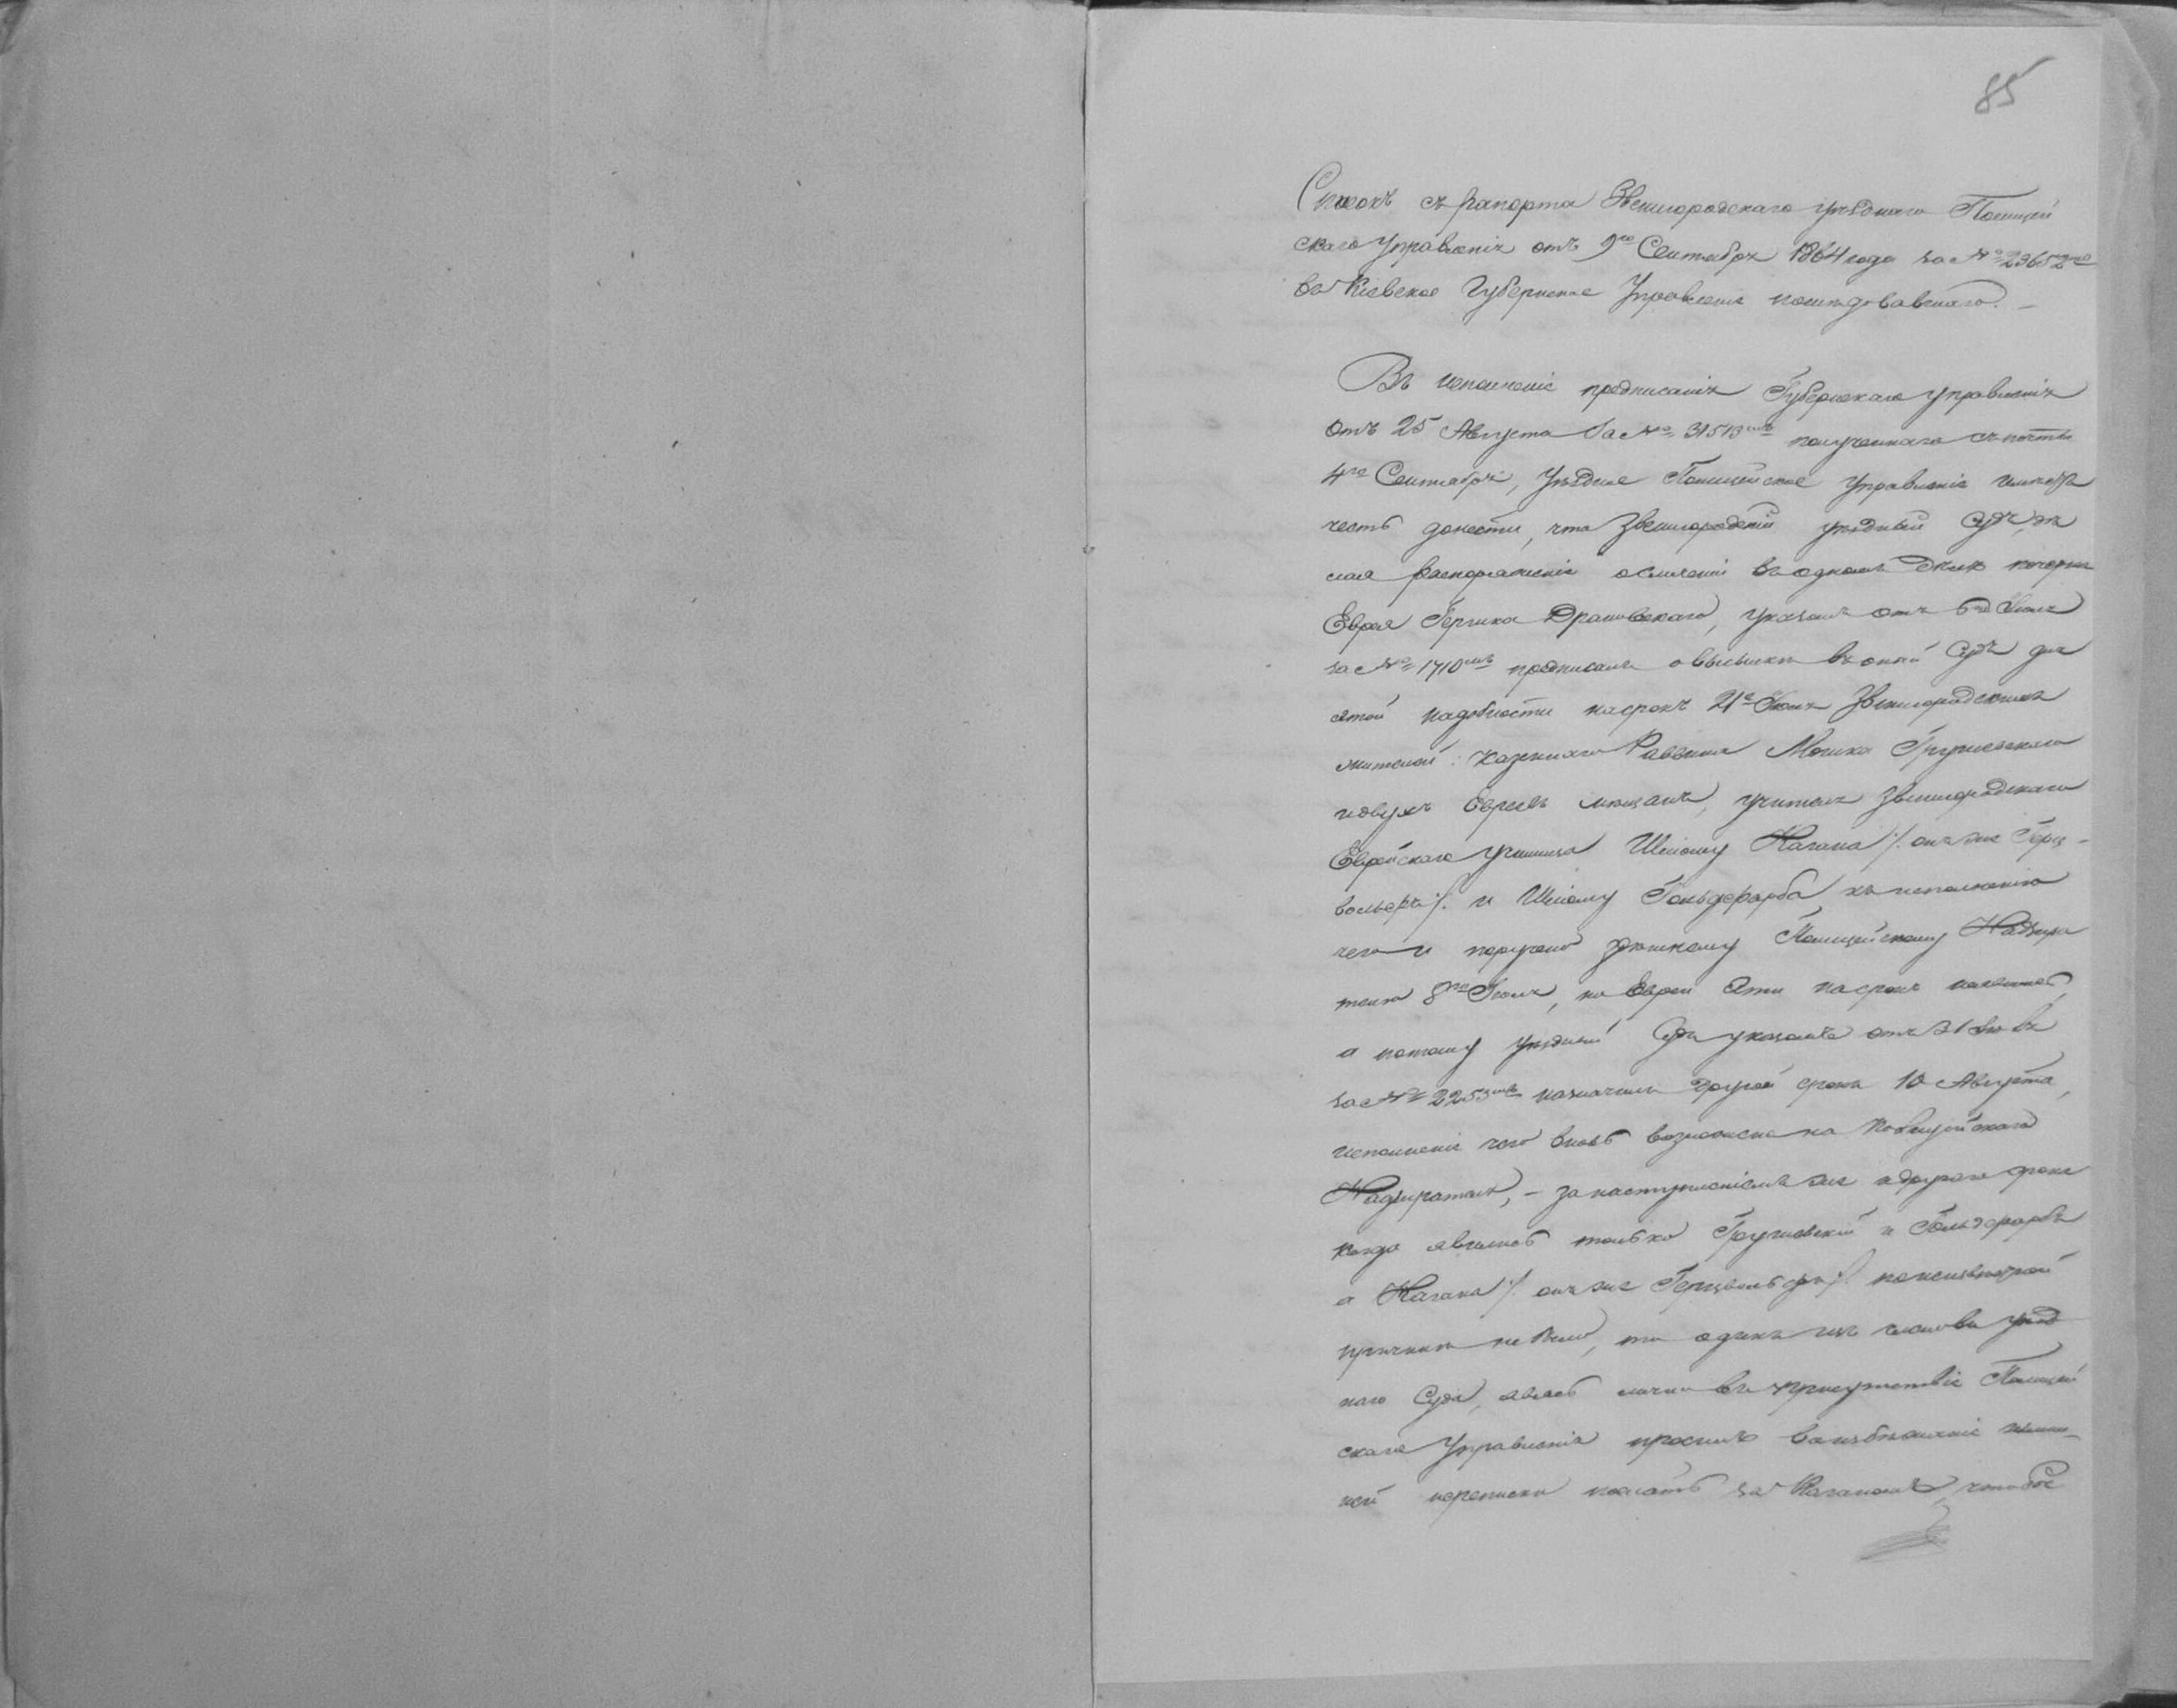 85
Списокъ съ рапорта Звенигородскаго уѣзднаго Полицей
скаго Управленія отъ 9го Сентября 1864 года за №
въ Кіевское Губернское Управленіе послѣдовавшаго. —
Въ исполненіе предписанія Губернскаго управленія
отъ 25 Августа за № 31513мъ полученнаго съ почты
4го Сентября, Уѣздное Полицейское Управленіе имѣетъ
честь донести, что Звенигородскій уѣздный Судъ,
распоряженіе въ одномъ
Еврея Гершка Драновскаго, указомъ отъ 6го Іюля
за № 1710мъ предписалъ о высылкѣ въ оный Судъ для
этой надобности на срокъ 21е Іюля Звенигородскихъ
жителей: казеннаго Раввина Мошка Грушевскаго
и двухъ Евреевъ мѣщанъ, учителя Звенигородскаго
Еврейскаго училища Шлёому Кагана /: онъ же Герц-
вольфъ :/ и Шлёому Гольдфарба, къ исполненію
чего и поручено здѣшнему Полицейскому Надзира
телю 8го Іюля, но Евреи эти на срокъ неявились,
а потому уѣздный Судъ указомъ отъ 31 Іюля
за № 2253мъ назначилъ другой срокъ 10 Августа,
исполненіе чего вновь возложено на Полицейскаго
Надзирателя, — за наступленіемъ же и другаго срока
когда явились только Грушевскій и Гольдфарбъ
а Каганъ /: онъ же Герцвольфъ :/ по неизвѣстной
причинѣ не былъ, то одинъ изъ членовъ уѣзд
наго Суда, явясь лично въ присутствіе Полицей
скаго Управленія просилъ во избѣжаніе излиш-
ней переписки послать за Каганомъ, чтобы